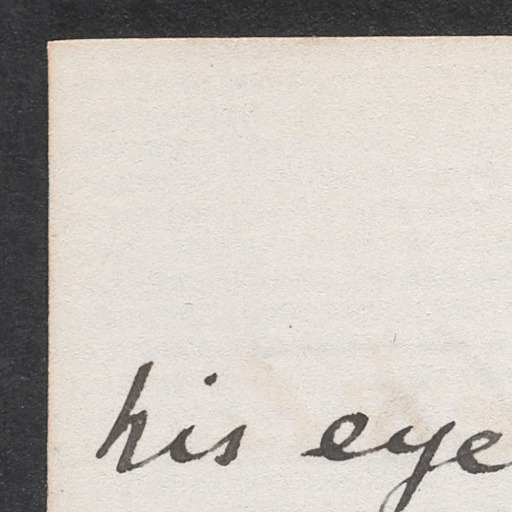 his eye